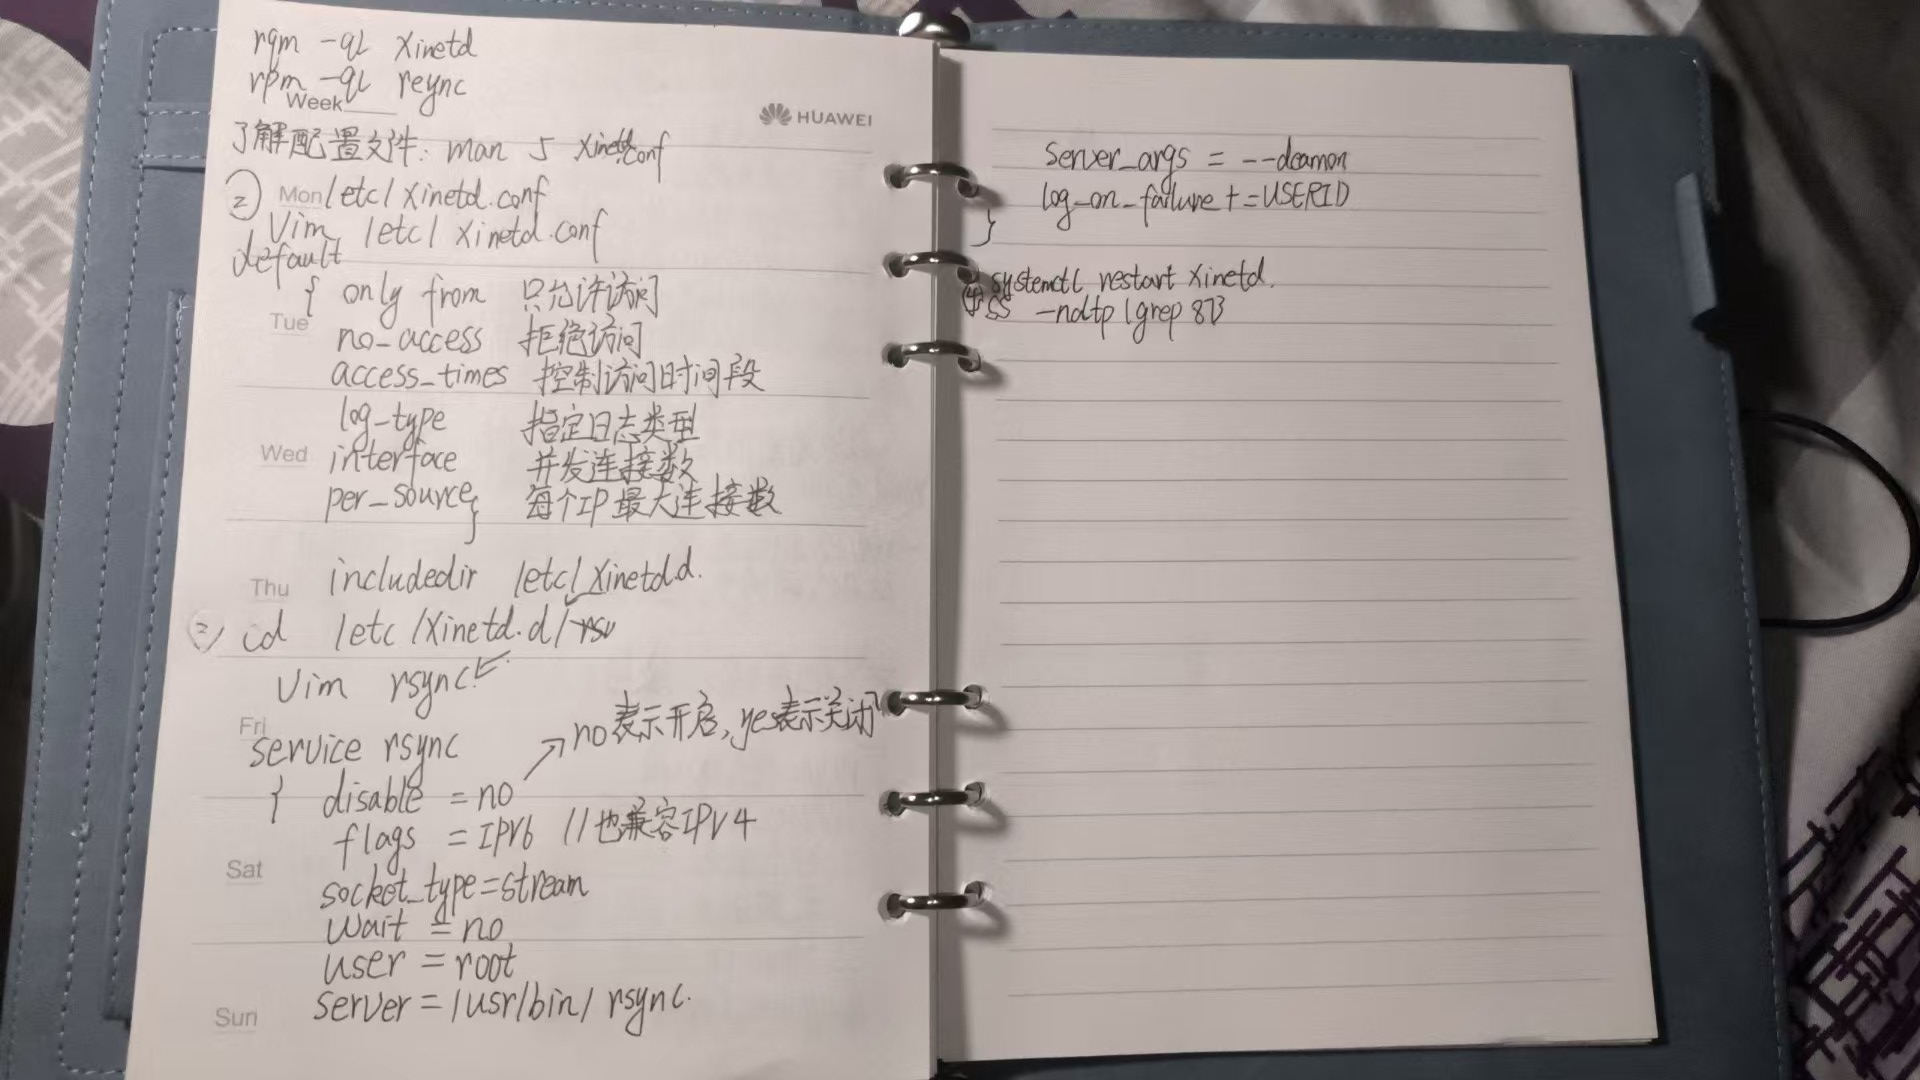 rqm -ql xinetd
rpm -ql reync
Week
HUAWEI
了解配置文件: man 5 xinetd.conf
② Mon /etc/ xinetd.conf
Vim /etc/ xinetd.conf
default
{ only from 只允许访问
Tue
no_access 拒绝访问
access_times 控制访问时间段
log_type 指定日志类型
Wed interface 并发连接数
per_source} 每个IP最大连接数
Thu includedir /etc/ xinetd.d.
cd /etc/xinetd.d/
Vim rsync
Fri no表示开启,yes表示关闭
service rsync
{ disable = no
flags = IPV6 //也兼容IPV4
Sat
socket_type=stream
wait = no
user = root
server = /usr/bin/ rsync.
Sun
server_args = --deamon
log_on_failure += USERID
}
systemctl restart xinetd.
④ ss -ndtp |grep 873